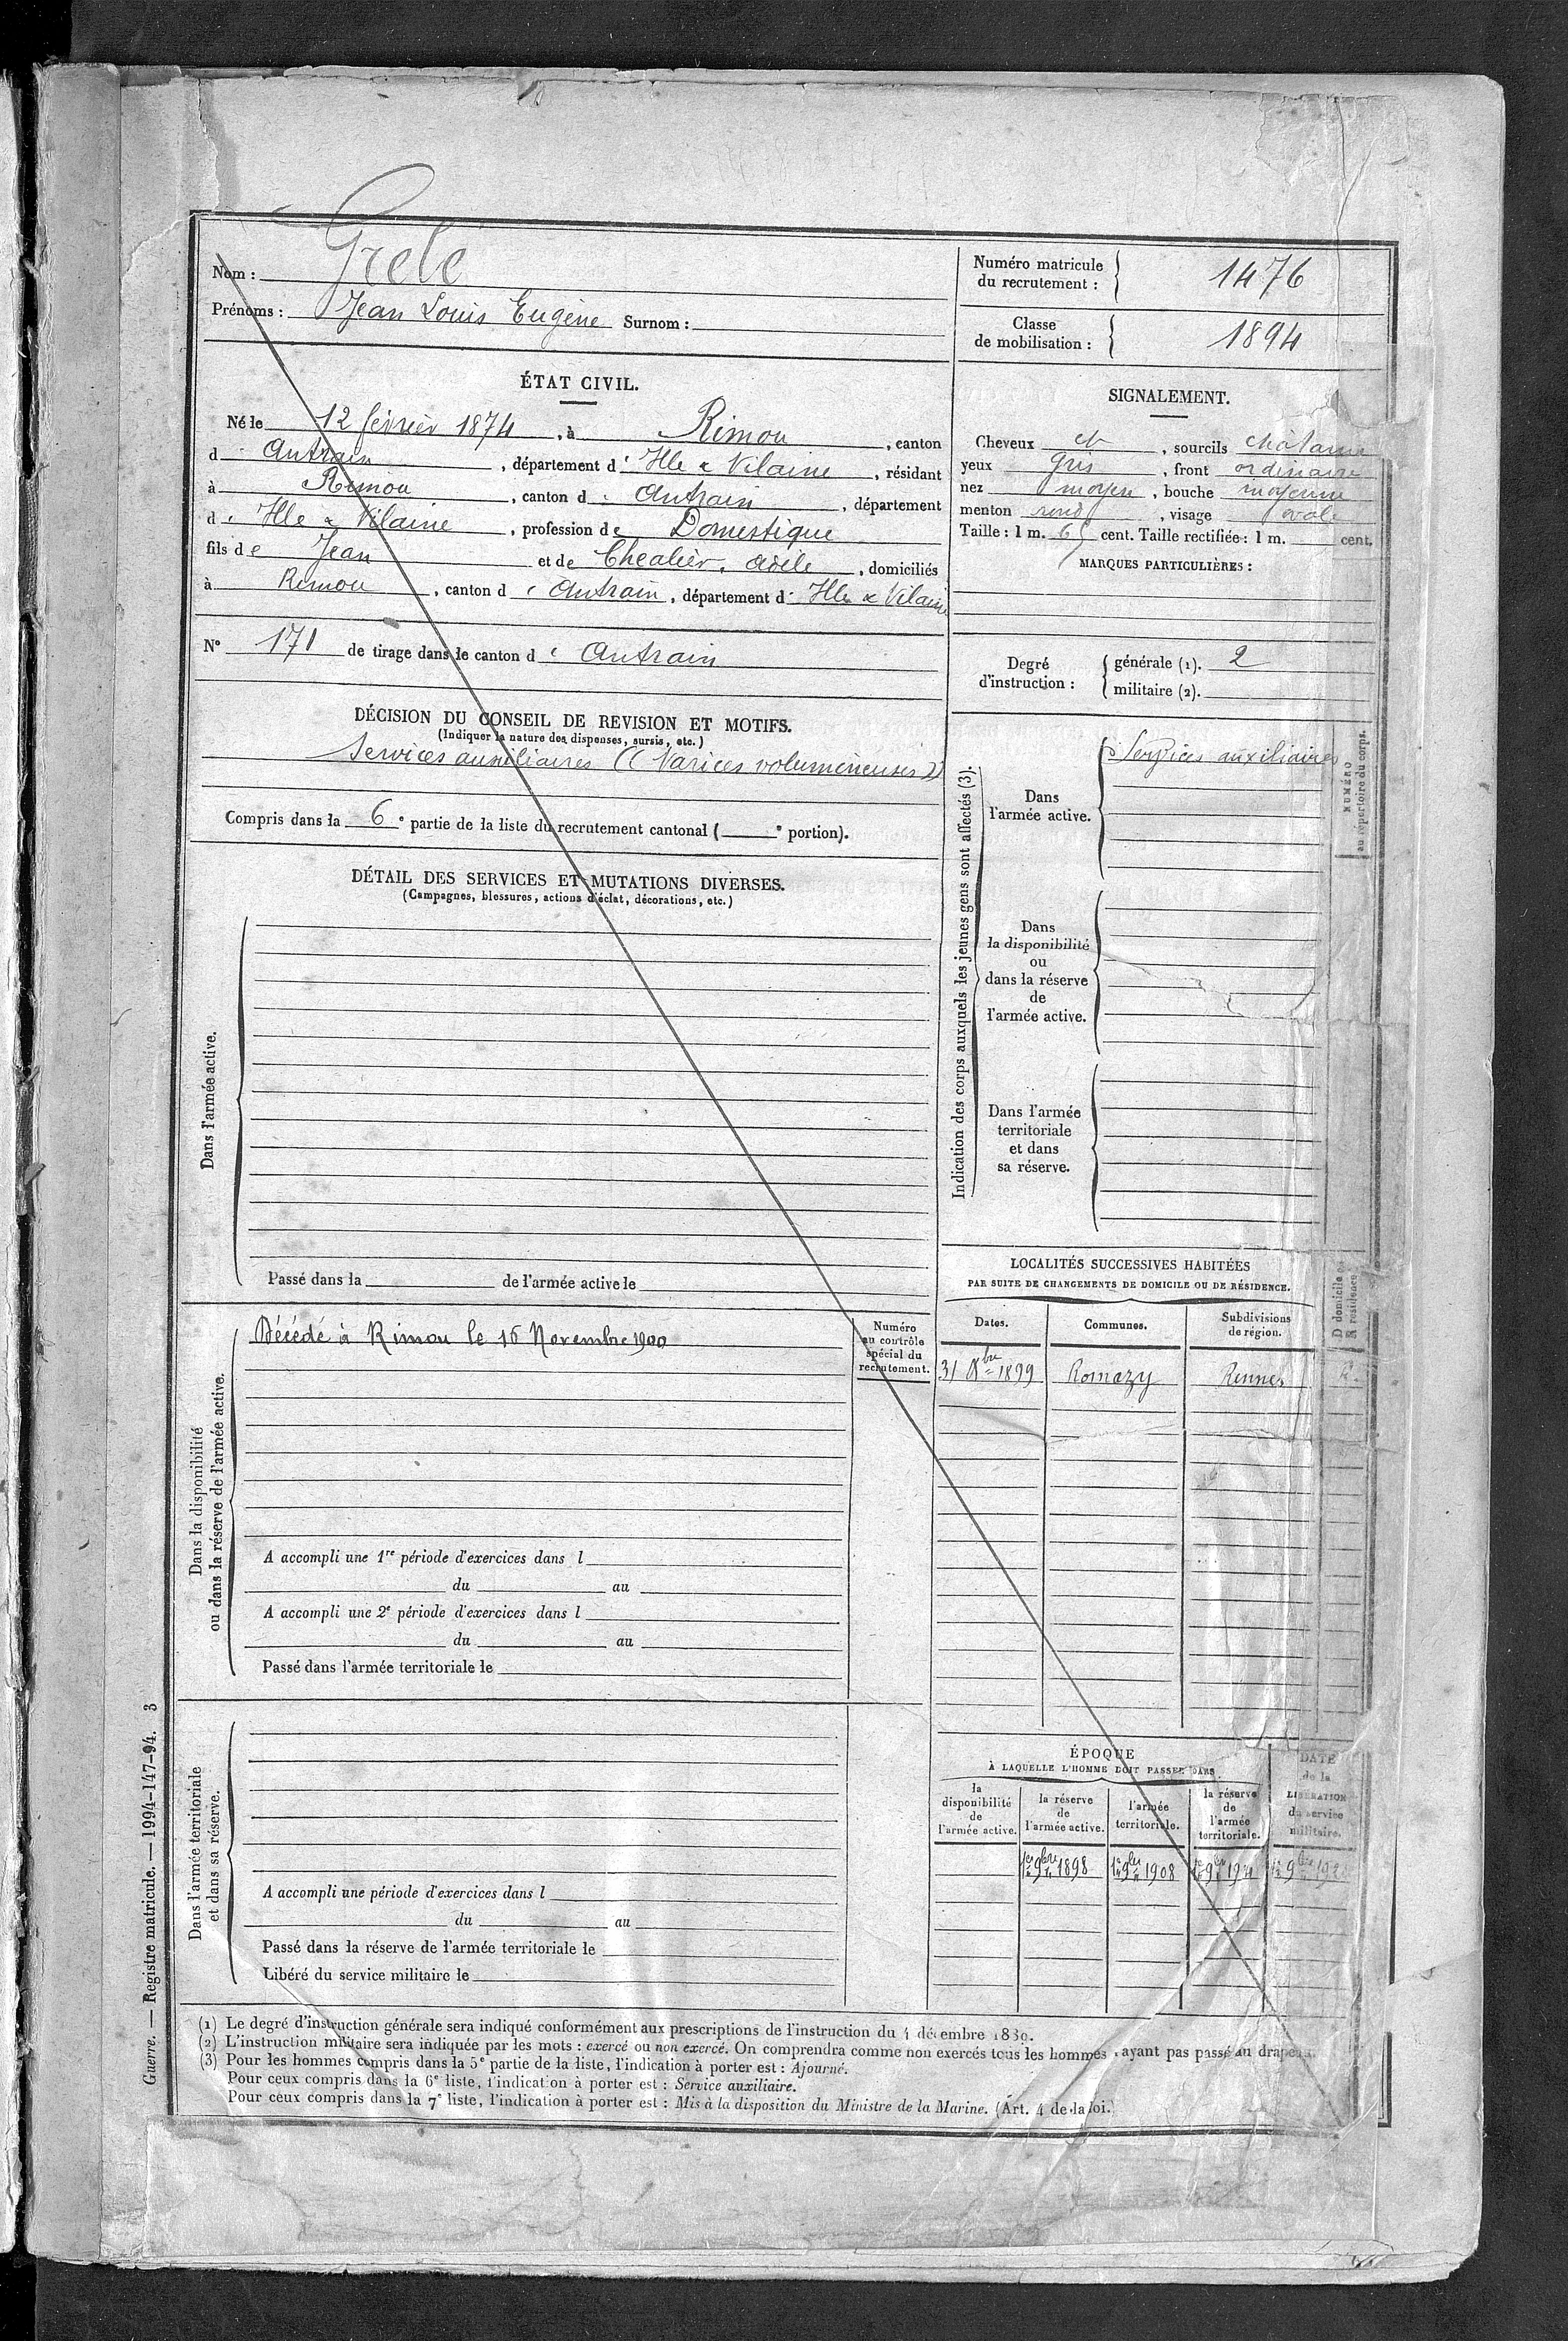 Nom : Grelé
Prénoms : Jean Louis Eugène Surnom :
Numéro matricule du recrutement : 1476
Classe de mobilisation : 1894
ÉTAT CIVIL.
Né le 12 février 1874, à Rimou, canton
d' Antrain, département d' Ille & Vilaine, résidant
à Rimou, canton d' Antrain, département
d' Ille & Vilaine, profession de Domestique
fils de Jean et de Chealier, Adèle, domiciliés
à Rimou, canton d' Antrain, département d' Ille & Vilaine
N° 171 de tirage dans le canton d' Antrain
SIGNALEMENT.
Cheveux et, sourcils châtains
yeux gris, front ordinaire
nez moyen, bouche moyenne
menton rond, visage ovale
Taille : 1 m. 65 cent. Taille rectifiée : 1 m. cent.
MARQUES PARTICULIÈRES :
Degré d'instruction :
générale (1). 2
militaire (2).
DÉCISION DU CONSEIL DE REVISION ET MOTIFS.
(Indiquer la nature des dispenses, sursis, etc.)
Services auxiliaires (( Varices volumineuses ))
Compris dans la 6e partie de la liste du recrutement cantonal ( e portion).
DÉTAIL DES SERVICES ET MUTATIONS DIVERSES.
(Campagnes, blessures, actions d'éclat, décorations, etc.)
Dans l'armée active.
Passé dans la de l'armée active le
Indication des corps auxquels les jeunes gens sont affectés (3).
Dans
l'armée active.
Services auxiliaires
NUMÉRO
au répertoire du corps.
Dans
la disponibilité
ou
dans la réserve
de
l'armée active.
Dans l'armée
territoriale
et dans
sa réserve.
Dans la disponibilité
ou dans la réserve de l'armée active.
Décédé à Rimou le 16 Novembre 1900
Numéro
au contrôle
spécial du
recrutement.
A accompli une 1re période d'exercices dans l
du au
A accompli une 2e période d'exercices dans l
du au
Passé dans l'armée territoriale le
LOCALITÉS SUCCESSIVES HABITÉES
PAR SUITE DE CHANGEMENTS DE DOMICILE OU DE RÉSIDENCE.
Dates. Communes. Subdivisions de région. D domicile ou R résidence
31 8bre 1899 Romazy Rennes R.
Dans l'armée territoriale
et dans sa réserve.
A accompli une période d'exercices dans l
du au
Passé dans la réserve de l'armée territoriale le
Libéré du service militaire le
ÉPOQUE
À LAQUELLE L'HOMME DOIT PASSER DANS
la disponibilité de l'armée active.
la réserve de l'armée active.
l'armée territoriale.
la réserve de l'armée territoriale.
DATE de la LIBÉRATION du service militaire.
1er 9bre 1898 1er 9bre 1908
Guerre. — Registre matricule. — 1994-147-94. 3
(1) Le degré d'instruction générale sera indiqué conformément aux prescriptions de l'instruction du 4 décembre 1889.
(2) L'instruction militaire sera indiquée par les mots : exercé ou non exercé. On comprendra comme non exercés tous les hommes n'ayant pas passé au drapeau.
(3) Pour les hommes compris dans la 5e partie de la liste, l'indication à porter est : Ajourné.
Pour ceux compris dans la 6e liste, l'indication à porter est : Service auxiliaire.
Pour ceux compris dans la 7e liste, l'indication à porter est : Mis à la disposition du Ministre de la Marine. (Art. 4 de la loi.)